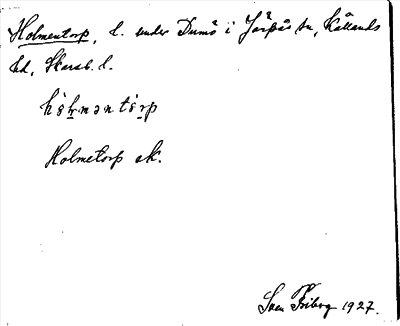 Holmentorp, l. under Dumö i Järpås sn, Kållands
hd, Skarab. l.
hò̜l̥məntò̜r̥p
Holmetorp ek.
Sven Friberg 1927.